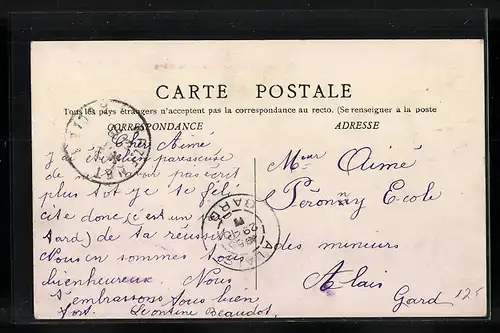 CARTE POSTALE
Tous les pays étrangers n'acceptent pas la correspondance au recto. (Se renseigner à la poste
CORRESPONDANCE
ADRESSE
Cher Aimé
J' bien paresseuse
de avoir pas écrit
plus tot je te féli
cite donc (c'est un
tard) de ta réussite
Nous en sommes tous
bienheureux. Nous
t'embrassons tous bien
fort. Léontine Beaudot.
Mεur Aimé
Péronny Ecole
des mineurs
Alais
Gard
ALAIS
GARD